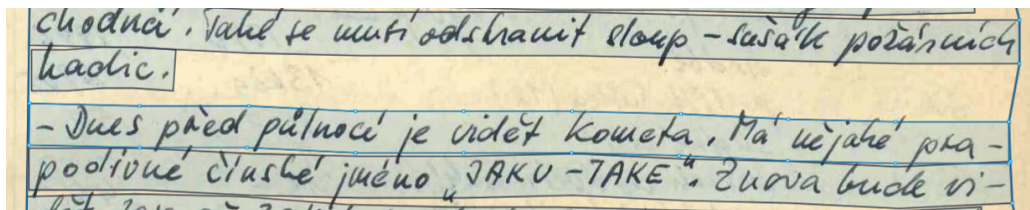 chodníčí. Také se musí odstranit sloup – sušák požárních
hadic.
– Dnes před půlnocí je vidět kometa. Má nějaké pra-
podivné čínské jméno „JAKU – TAKE“. Znova bude vi-